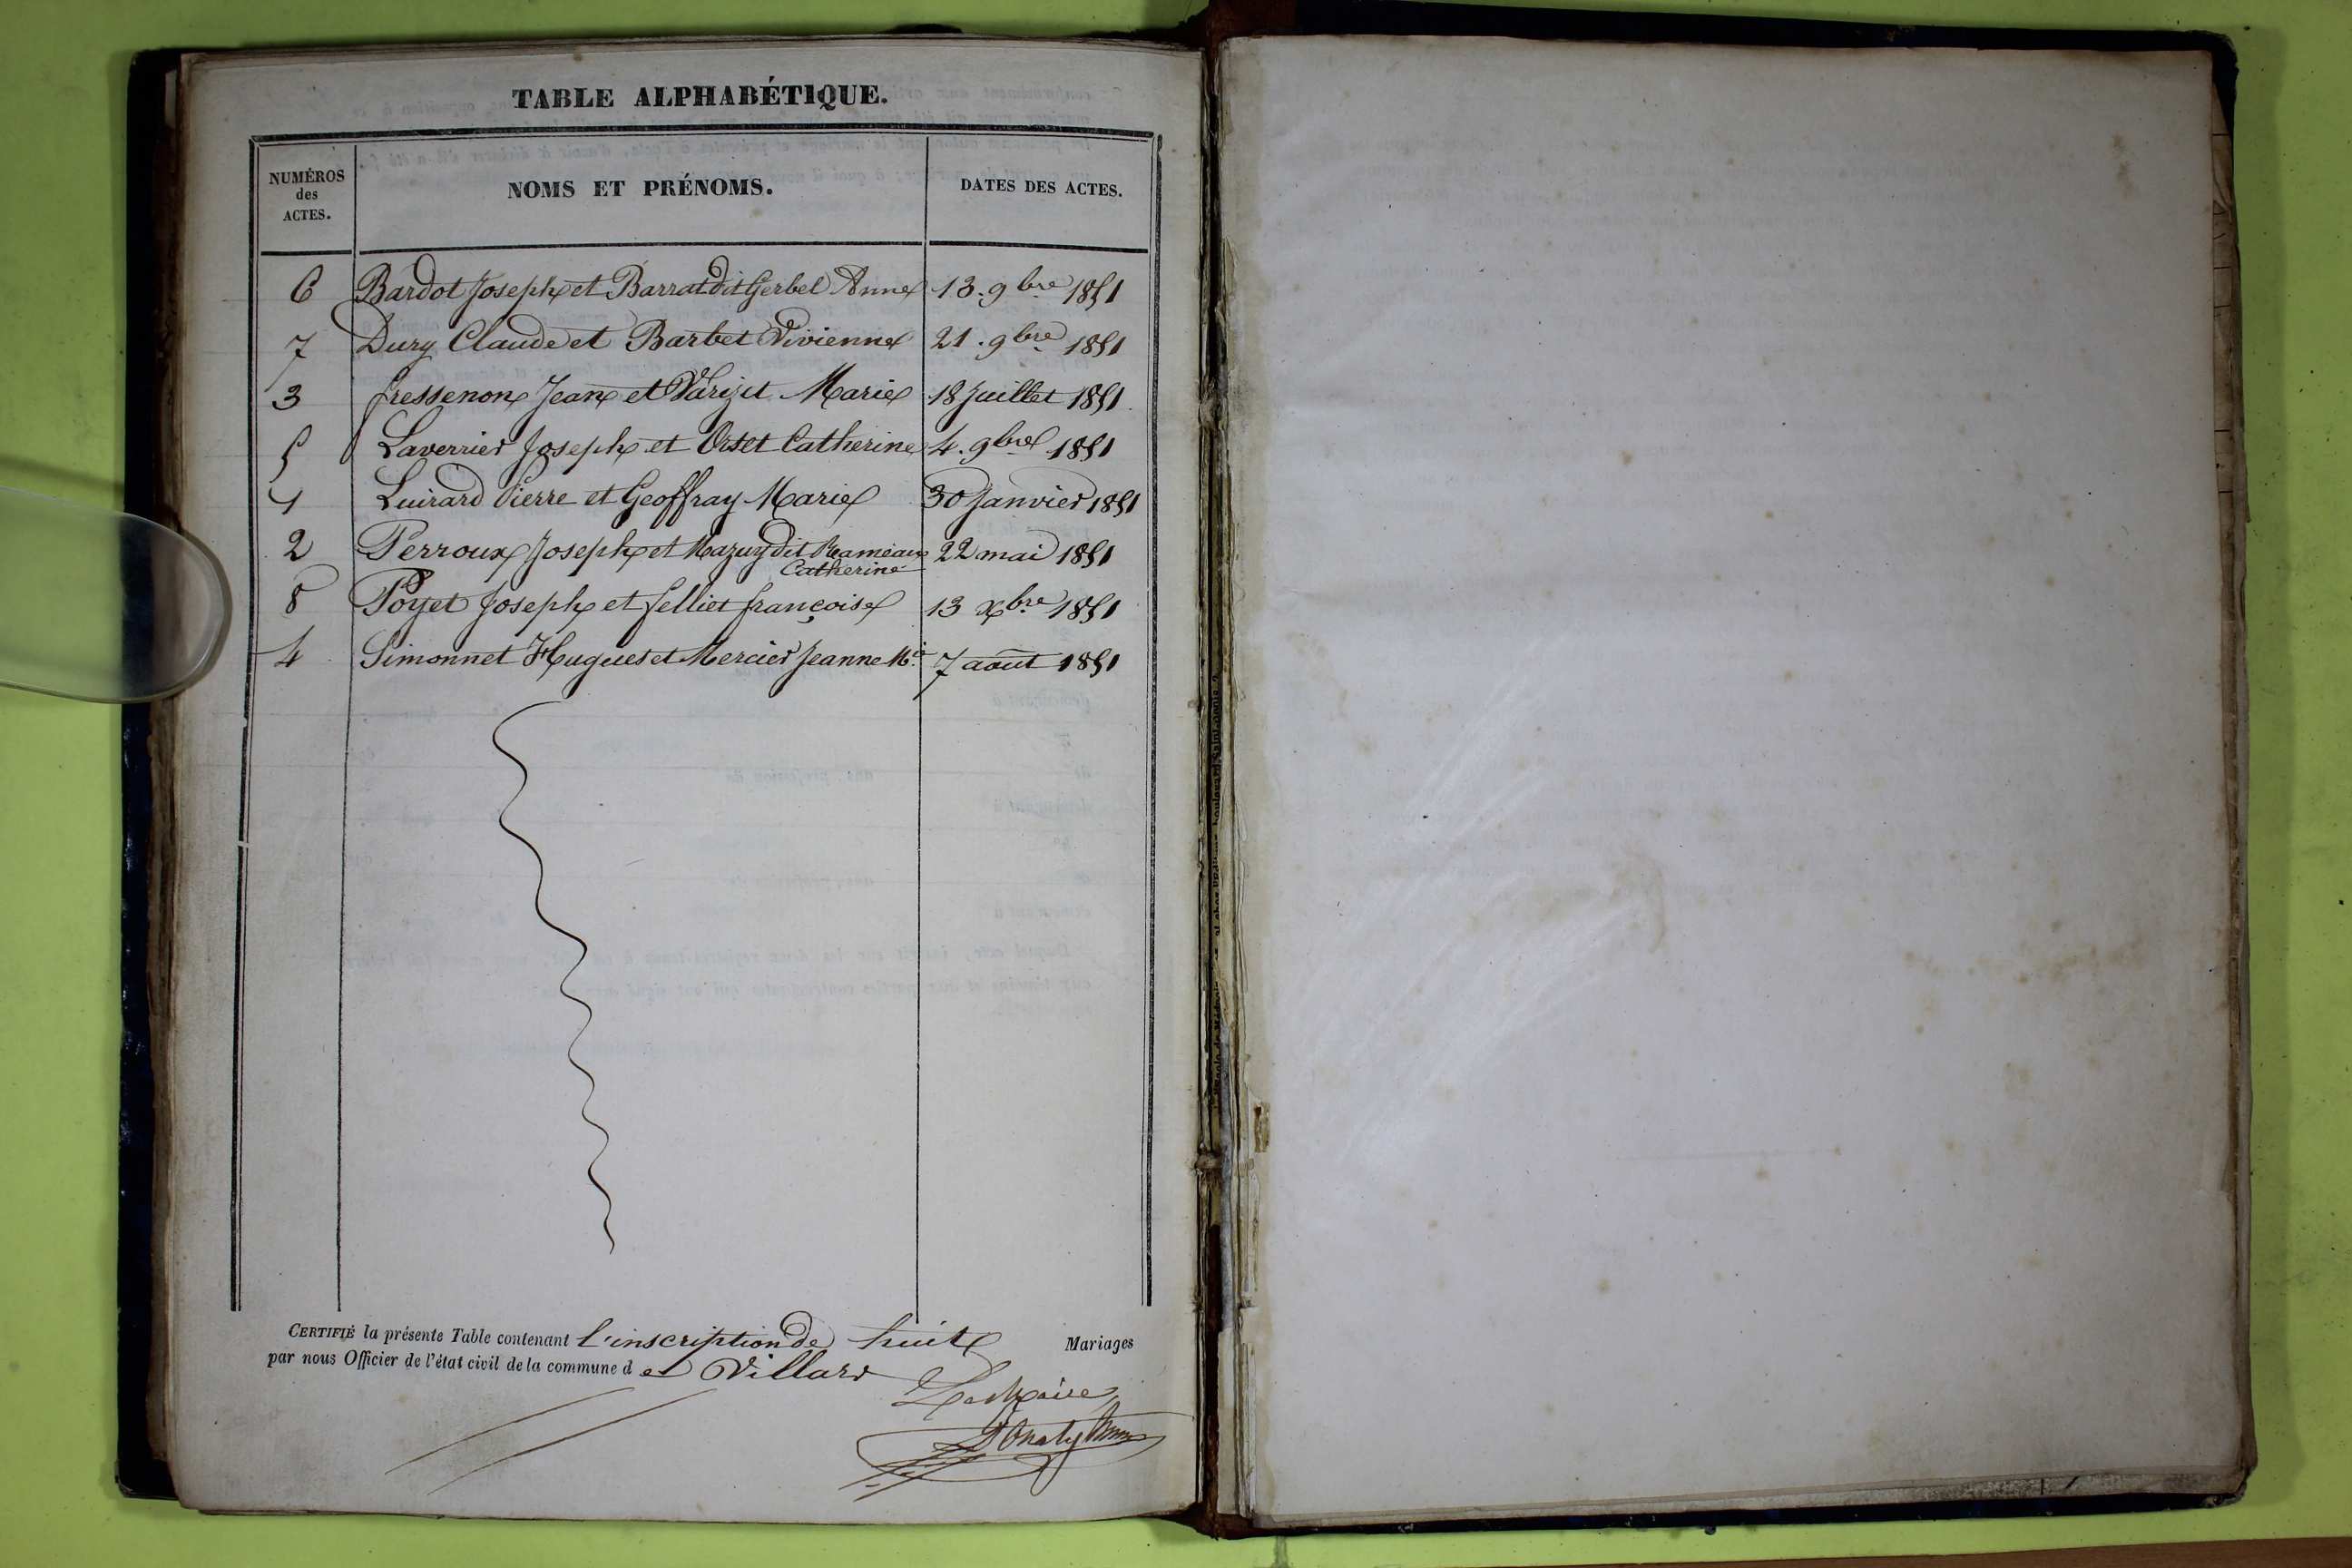 TABLE ALPHABÉTIQUE.
NUMÉROS des ACTES. NOMS ET PRÉNOMS. DATES DES ACTES.
6 Bardot Joseph et Barrat dit Gerbel Anne 13. 9bre 1851
7 Dury Claude et Barbet Vivienne 21. 9bre 1851
3 fressenon Jean et Varizit Marie 18 Juillet 1851
5 Laverrier Joseph et Orset Catherine 4. 9bre 1851
1 Luirard Pierre et Geoffray Marie 30 Janvier 1851
2 Perroux Joseph et Mazuy dit Rameaux 22 mai 1851
Catherine
8 Poyet Joseph et fellier françoise 13 Xbre 1851
4 Simonnet Hugues et Mercier Jeanne Mie 7 août 1851
CERTIFIÉ la présente Table contenant l'inscription de huit Mariages
par nous Officier de l'état civil de la commune de Villars
Le Maire